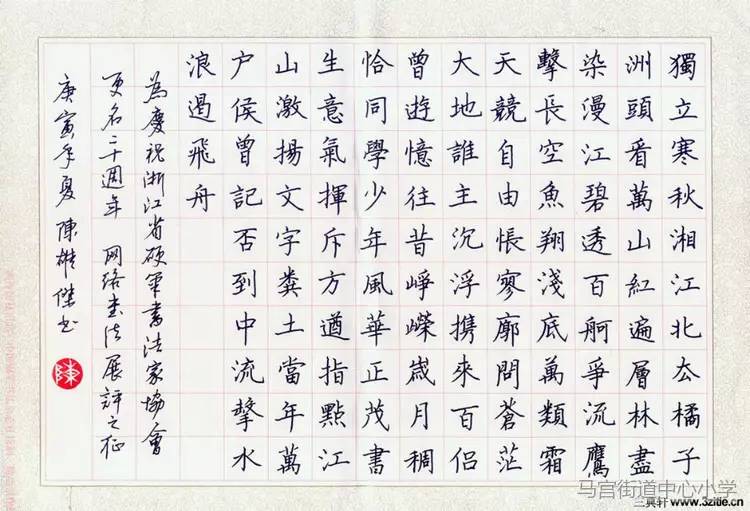 獨立寒秋湘江北厺橘子
洲頭看萬山紅遍層林盡
染漫江碧透百舸爭流鷹
擊長空魚翔淺底萬類霜
天競自由悵寥廓問蒼茫
大地誰主沉浮携來百侣
曾遊憶往昔崢嶸歲月稠
恰同學少年風華正茂書
生意氣揮斥方遒指點江
山激揚文字糞土當年萬
户侯曾記否到中流擊水
浪遏飛舟
為慶祝浙江省硬筆書法家協會
更名二十週年 网络書法展評之征
庚寅年夏陳雄傑书
陳
马宫街道中心小学
三真轩 www.3zitie.cn